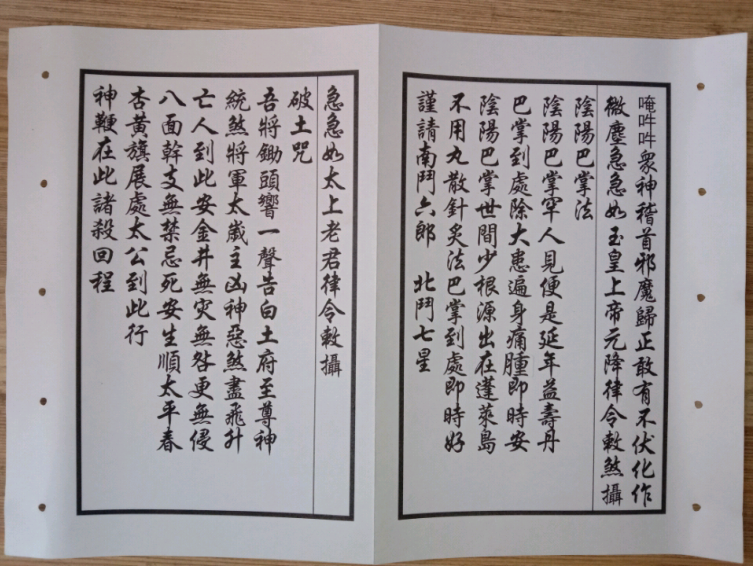 唵吽吽眾神稽首邪魔歸正敢有不伏化作
微塵急急如玉皇上帝元降律令敕煞攝
陰陽巴掌法
陰陽巴掌罕人見便是延年益壽丹
巴掌到處除大患遍身痛腫即時安
陰陽巴掌世間少根源出在蓬萊島
不用丸散針炙法巴掌到處即時好
謹請南鬥六郎 北鬥七星
急急如太上老君律令敕攝
破土咒
吾將鋤頭響一聲告白土府至尊神
統煞將軍太歲主凶神惡煞盡飛升
亡人到此安金井無災無咎更無侵
八面幹支無禁忌死安生順太平春
杏黃旗展處太公到此行
神鞭在此諸殺回程